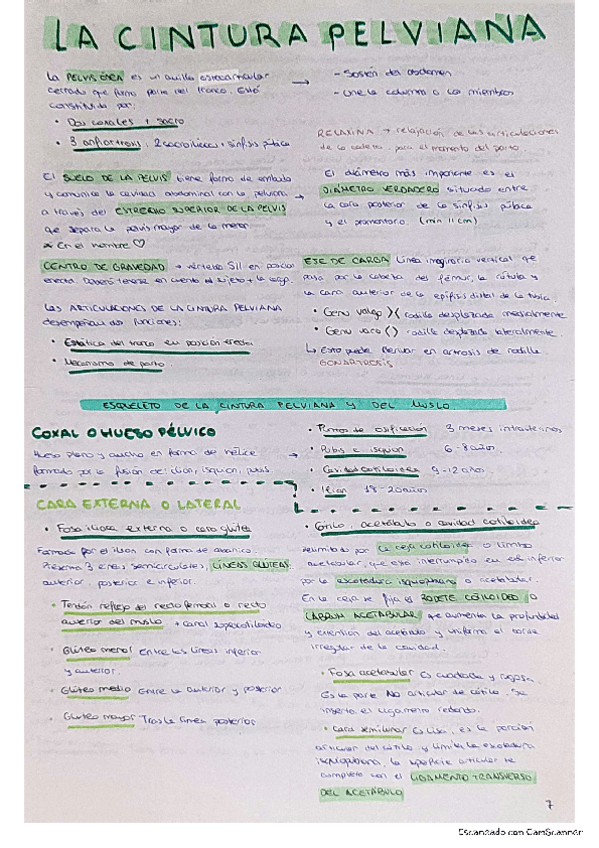 LA CINTURA PELVIANA
La PELVIS ÓSEA es un anillo osteoarticular
cerrado que forma parte del tronco. Está
constituida por:
• Dos coxales + sacro
• 3 anfiartrosis, 2 sacroiliacas + sínfisis púbica
→ - Sostén del abdomen
- Une la columna a los miembros
RELAXINA → relajación de las articulaciones
de la cadera para el momento del parto.
El SUELO DE LA PELVIS tiene forma de embudo
y comunica la cavidad abdominal con la pelviana
a través del ESTRECHO SUPERIOR DE LA PELVIS
que separa la pelvis mayor de la menor.
* En el hombre ♡
→ El diámetro más importante es el
DIÁMETRO VERDADERO situado entre
la cara posterior de la sínfisis púbica
y el promontorio. (min 11 cm)
CENTRO DE GRAVEDAD → vértebra SII en posición
erecta. Deberá tenerse en cuenta el sujeto + la carga.
Las ARTICULACIONES DE LA CINTURA PELVIANA
desempeñan dos funciones:
• Estática del tronco en posición erecta
• Mecanismo de parto.
EJE DE CARGA Línea imaginaria vertical que
pasa por la cabeza del fémur, la rótula y
la cara anterior de la epífisis distal de la tibia.
• Genu valgo )( rodilla desplazada medialmente
• Genu varo () rodilla desplazada lateralmente
↳ Esto puede derivar en artrosis de rodilla
GONARTROSIS
ESQUELETO DE LA CINTURA PELVIANA Y DEL MUSLO.
COXAL O HUESO PÉLVICO
Hueso plano y ancho en forma de hélice
formado por la fusión del ilion, isquion, pubis.
→ • Puntos de osificación 3 meses intrauterinos
• Pubis e isquion 6-8 años.
• Cavidad cotiloidea 9-12 años.
• Ilion 18-20 años
CARA EXTERNA O LATERAL
• Fosa iliaca externa o cara glútea
Formada por el ilion con forma de abanico.
Presenta 3 crestas semicirculares, LÍNEAS GLÚTEAS:
anterior, posterior e inferior.
• Tendón reflejo del recto femoral o recto
anterior del muslo → canal supracotiloideo
• Glúteo menor Entre las líneas inferior
y anterior.
• Glúteo medio Entre la anterior y posterior
• Glúteo mayor Tras la línea posterior
• Cótilo, acetábulo o cavidad cotiloidea
Delimitado por la ceja cotiloidea o limbo
acetabular, que está interrumpido en su inferior
por la escotadura isquiopúbica o acetabular.
En la ceja se fija el RODETE COTILOIDEO O
LABRUM ACETABULAR que aumenta la profundidad
y extensión del acetábulo y uniforma el borde
irregular de la cavidad.
• Fosa acetabular Es cuadrada y rugosa.
Es la parte NO articular de cótilo. Se
inserta el ligamento redondo.
• Cara semilunar Es lisa, es la porción
articular del cótilo y limita la escotadura
isquiopúbica, la superficie articular se
completa con el LIGAMENTO TRANSVERSO
DEL ACETÁBULO
7
Escaneado con CamScanner